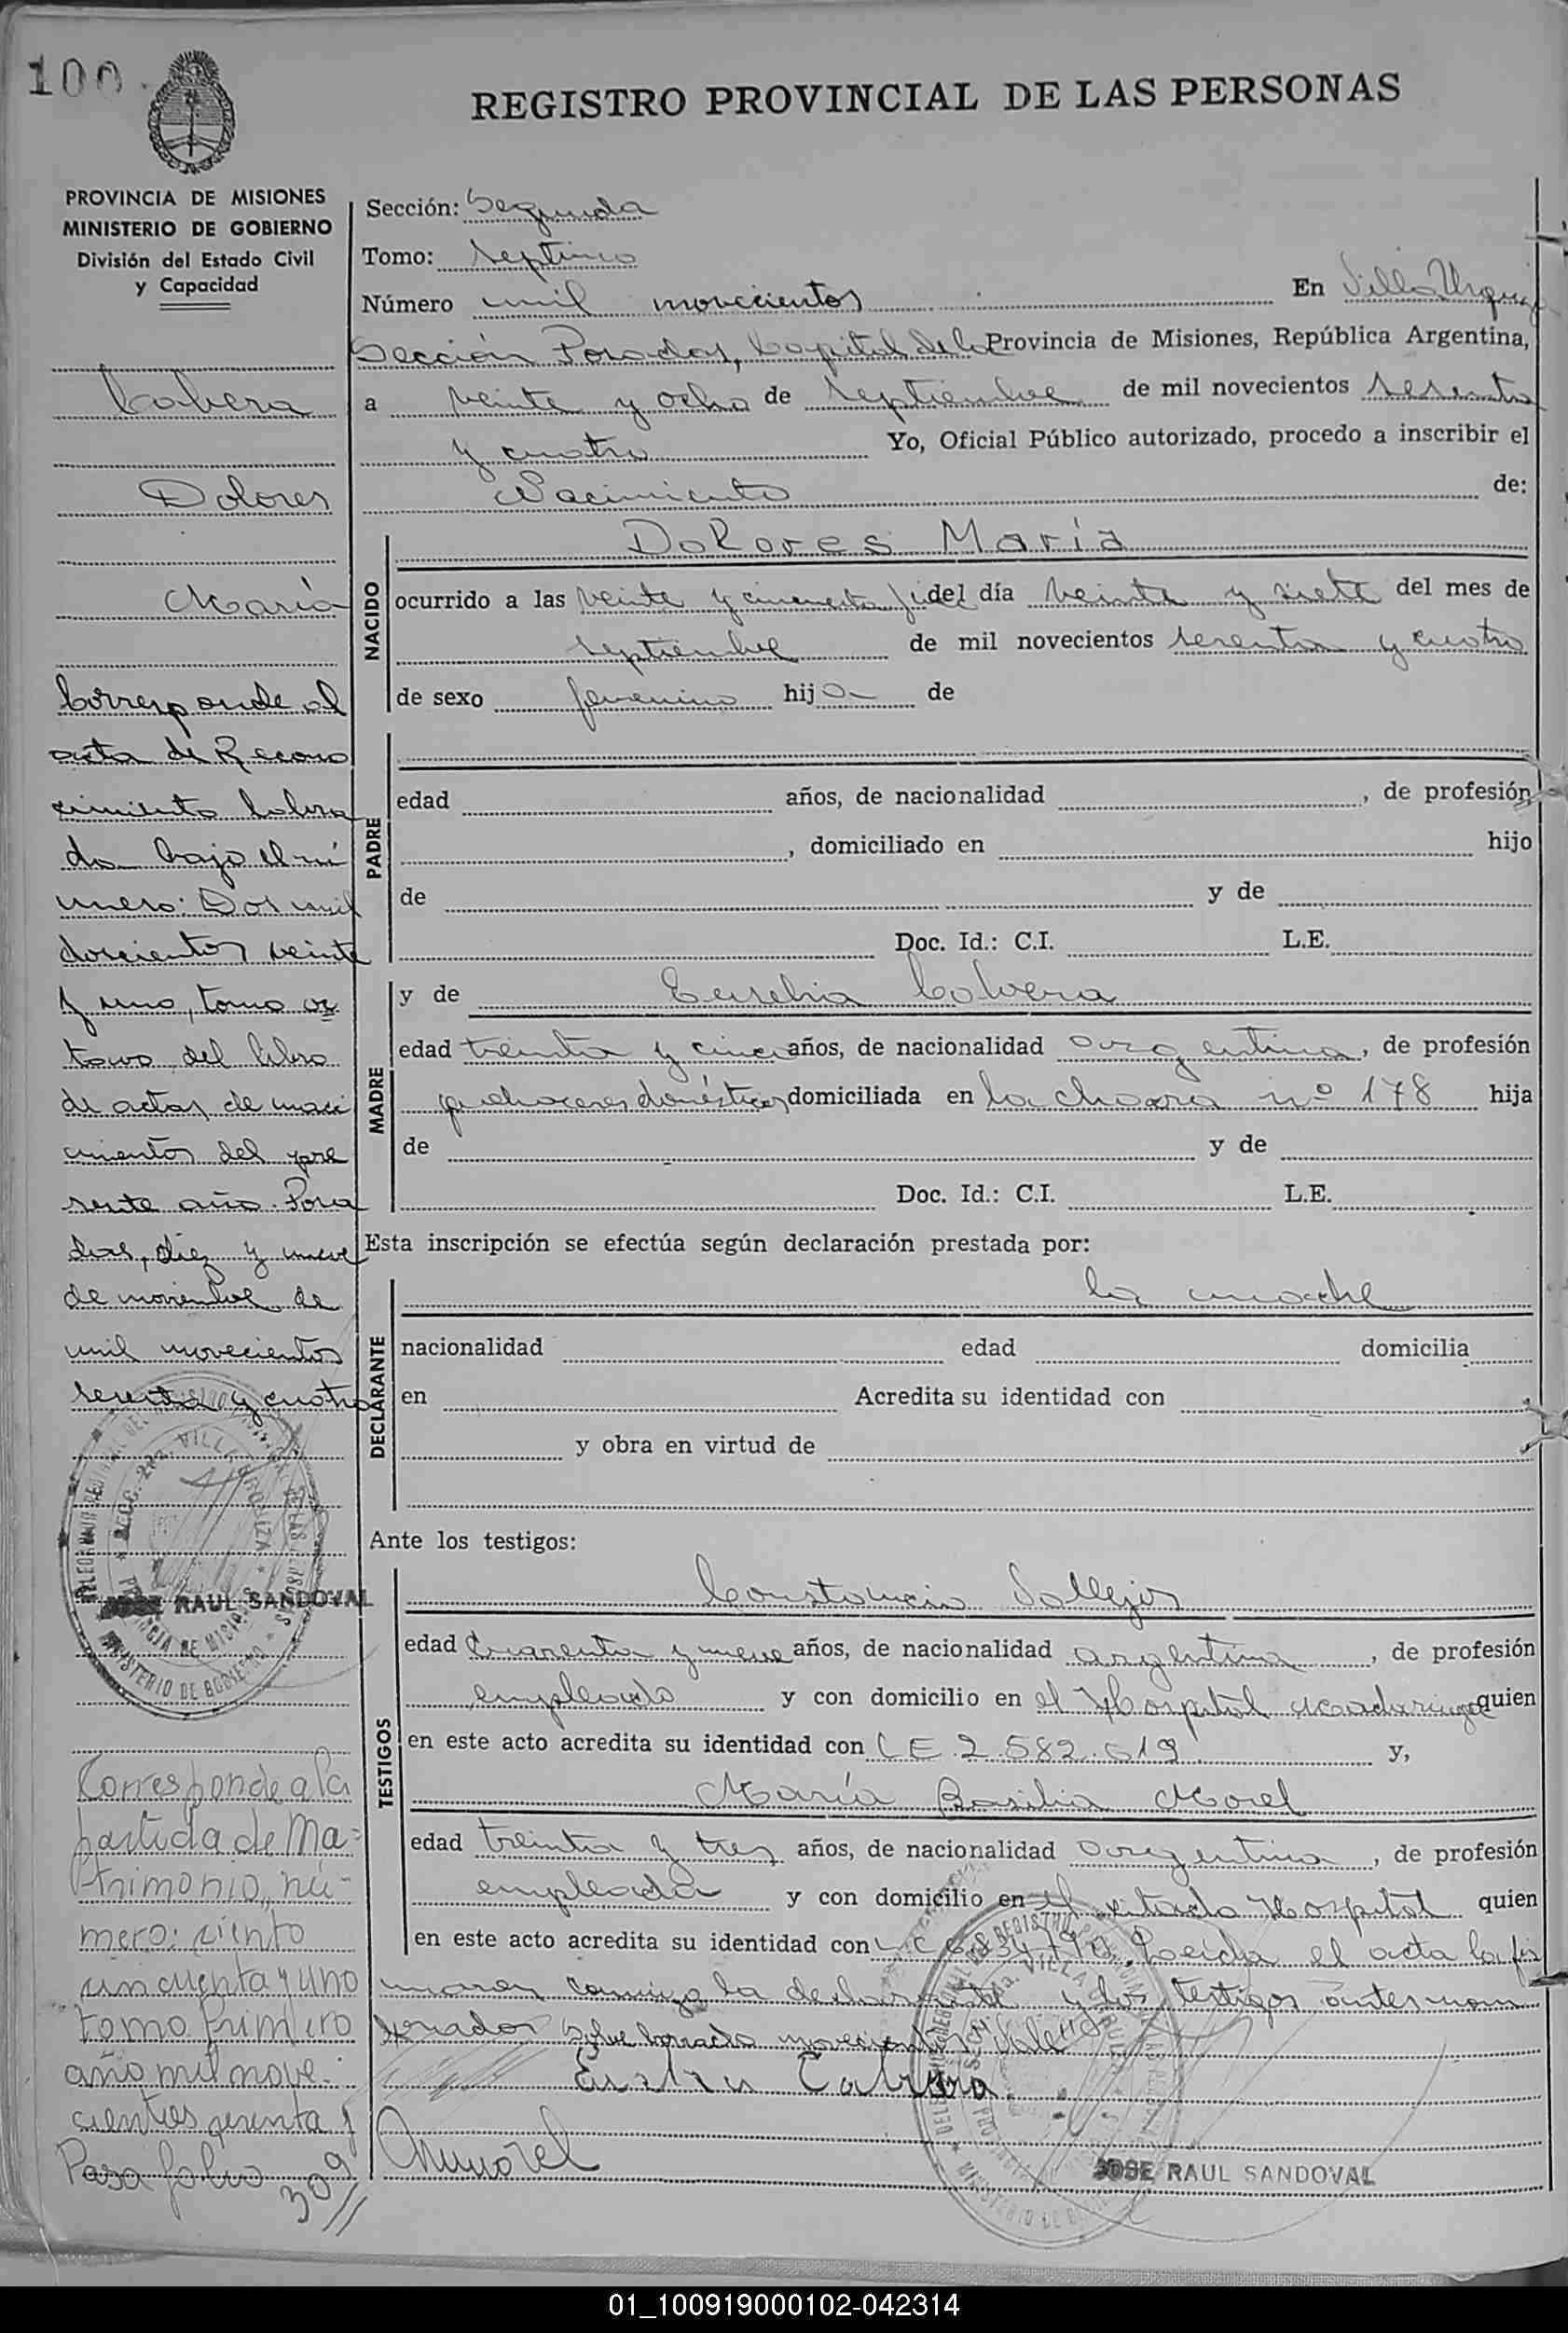 100
REGISTRO PROVINCIAL DE LAS PERSONAS
PROVINCIA DE MISIONES
MINISTERIO DE GOBIERNO
División del Estado Civil
y Capacidad
Cabrera
Dolores
María
Corresponde al
acta de Recono
cimiento labra
da bajo el nú
mero: Dos mil
doscientos veinte
y uno, tomo oc
tavo del libro
de actas de naci
mientos del pre
sente año. Posa
das, diez y nueve
de noviembre de
mil novecientos
sesenta y cuatro
JOSE RAUL SANDOVAL
Corresponde a la
partida de Ma=
trimonio, nú-
mero: ciento
cincuenta y uno
tomo Primero
año mil nove-
cientos y
Pasa folio 309
Sección: Segunda
Tomo: septimo
Número mil novecientos En Villa Urquiza
Sección Posadas, Capital de la Provincia de Misiones, República Argentina,
a veinte y ocho de septiembre de mil novecientos sesenta
y cuatro Yo, Oficial Público autorizado, procedo a inscribir el
Nacimiento de:
NACIDO
Dolores María
ocurrido a las veinte y cincuenta del día veinte y siete del mes de
septiembre de mil novecientos sesenta y cuatro
de sexo femenino hija de
PADRE
edad años, de nacionalidad , de profesión
, domiciliado en hijo
de y de
Doc. Id.: C.I. L.E.
MADRE
y de Eusebia Cabrera
edad treinta y cinco años, de nacionalidad argentina, de profesión
quehaceres domésticos domiciliada en la chacra nº 178 hija
de y de
Doc. Id.: C.I. L.E.
Esta inscripción se efectúa según declaración prestada por:
DECLARANTE
la madre
nacionalidad edad domicilia
en Acredita su identidad con
y obra en virtud de
Ante los testigos:
TESTIGOS
Constancio Vallejos
edad Cuarenta y nueve años, de nacionalidad argentina, de profesión
empleado y con domicilio en el Hospital Madariaga quien
en este acto acredita su identidad con L E 2.582.619 y,
María Basilia Morel
edad treinta y tres años, de nacionalidad argentina, de profesión
empleada y con domicilio en el citado Hospital quien
en este acto acredita su identidad con L.C. Leida el acta la fir
maron conmigo la declarante y los testigos antes men
cionados sobre borrado novecientos "Vale"
Cabrera
JOSE RAUL SANDOVAL
01_100919000102-042314